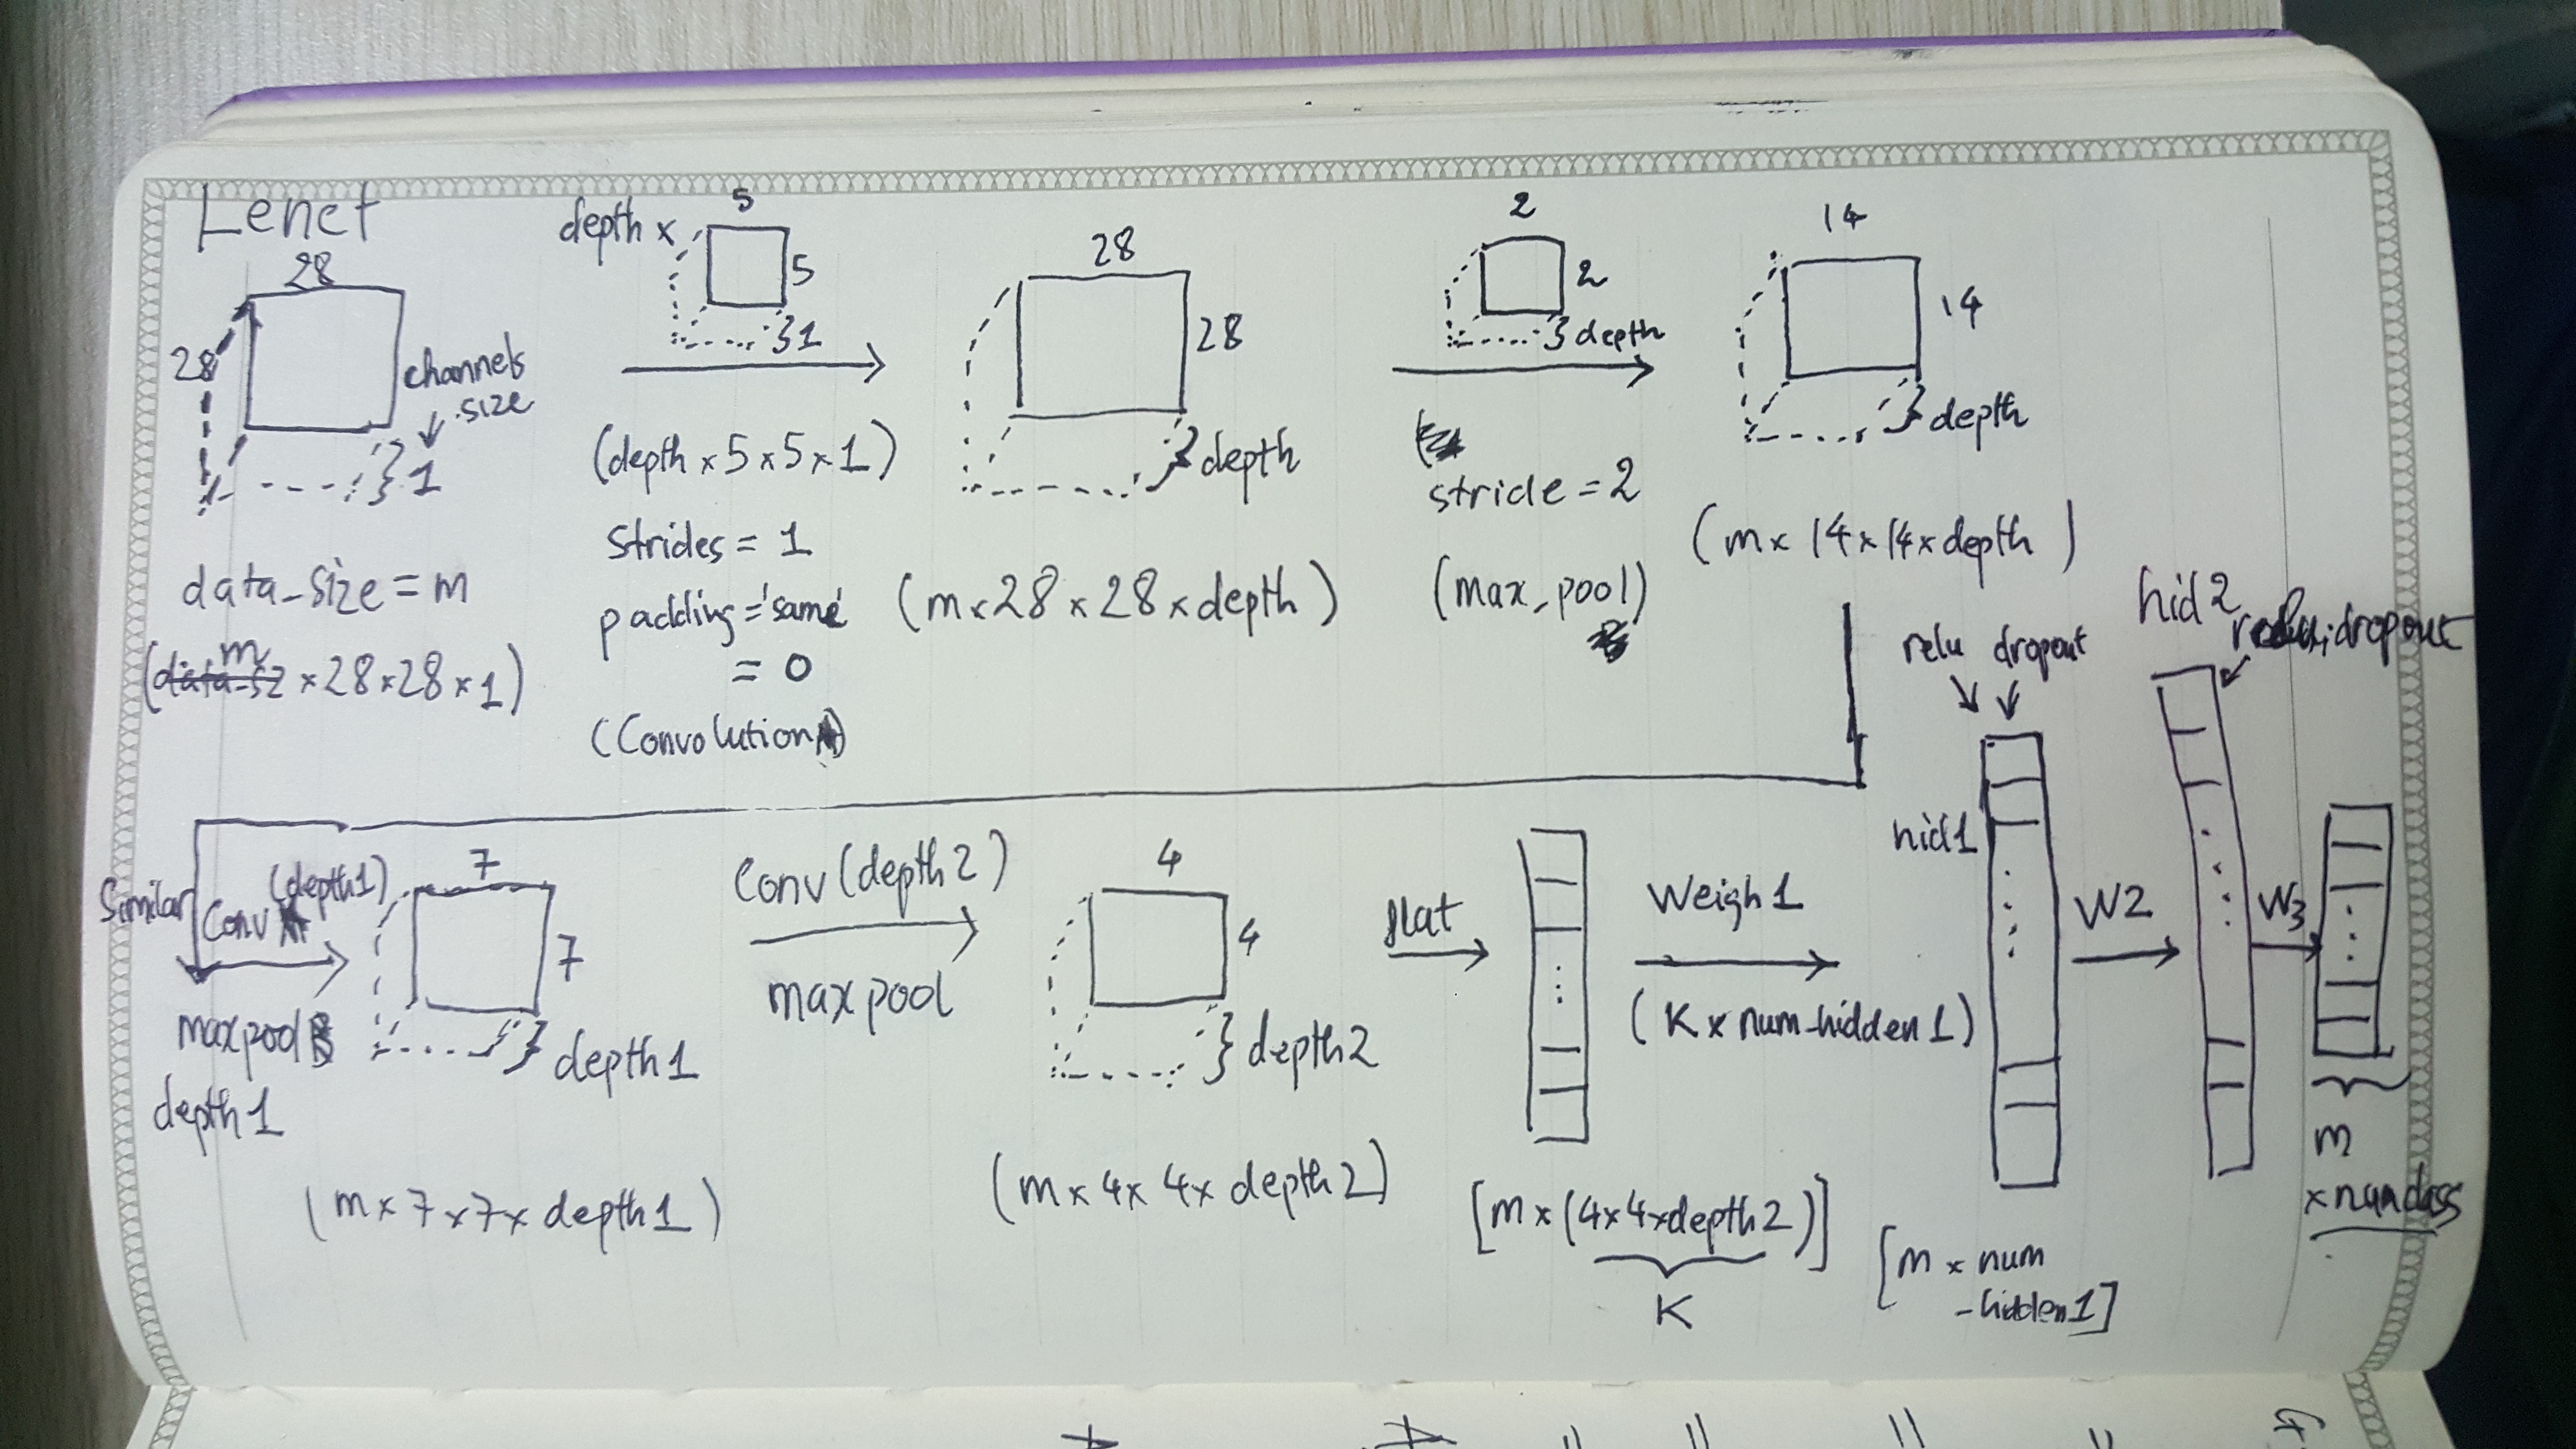 Lenet
28
28
channels
size
1
data-size = m
m
(data-sz × 28 × 28 × 1)
depth ×
5
5
1
(depth × 5 × 5 × 1)
strides = 1
padding = 'same'
= 0
(Convolution)
28
28
depth
(m × 28 × 28 × depth)
2
2
depth
stride = 2
(max_pool)
14
14
depth
(m × 14 × 14 × depth)
Similar
Conv (depth1)
maxpool
depth1
7
7
depth1
(m × 7 × 7 × depth1)
Conv (depth2)
maxpool
4
4
depth2
(m × 4 × 4 × depth2)
flat
[m × (4×4×depth2)]
K
Weigh1
(K × num-hidden1)
relu dropout
hid1
[m × num
-hidden1]
W2
hid2
dropout
W3
m
× num class